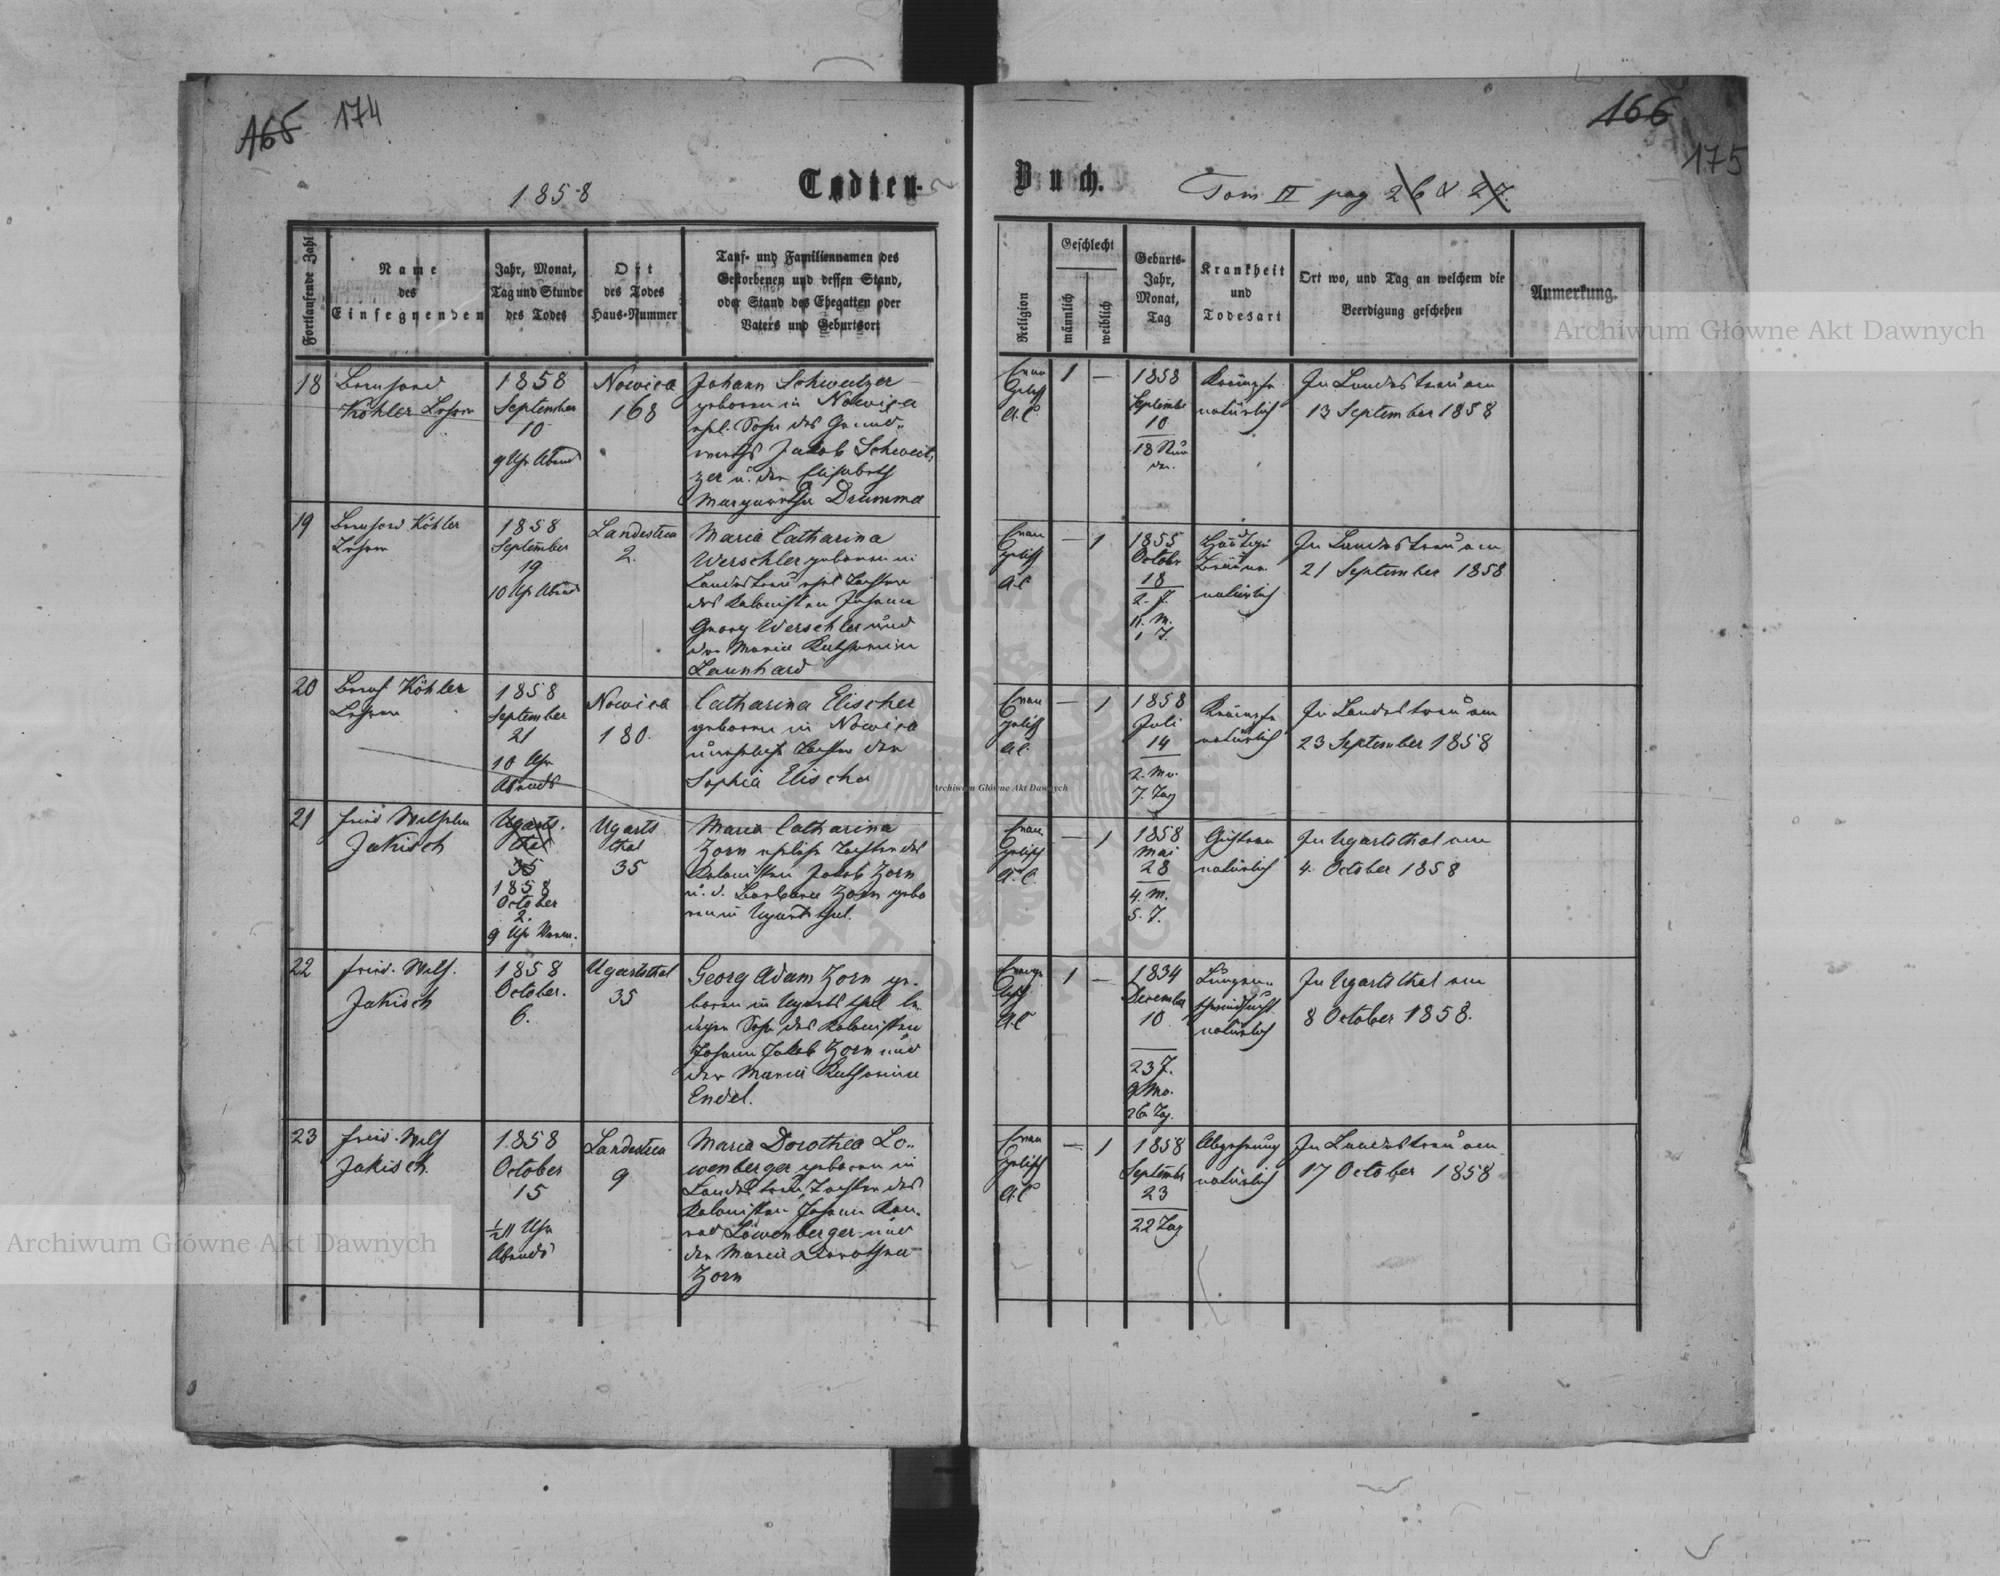 165 174
1858
Todten-
Fortlaufende Zahl
Name
des
Einsegnenden
Jahr, Monat,
Tag und Stunde
des Todes
Ort
des Todes
Haus-Nummer
Tauf- und Familiennamen des
Gestorbenen und dessen Stand,
oder Stand des Ehegatten oder
Vaters und Geburtsort
18
Bernhard
Köhler Lehrer
1858
September
10
9 Uhr Abend
Nowica
168
Johann Schweitzer
geboren in Nowica
ehel. Sohn des Grund-
wirths Jakob Schweit-
zer u. der Elisabeth
Margaretha Drumma
19
Bernhard Köhler
Lehrer
1858
September
19
10 Uhr Abend
Landestreu
2.
Maria Catharina
Werschler geboren in
Landestreu ehel Tochter
des Kolonisten Johann
Georg Werschler und
der Maria Katharina
Launhard
20
Bernh. Köhler
Lehrer
1858
September
21
10 Uhr
Abends
Nowica
180.
Catharina Elischer
geboren in Nowica
uneheliche Tochter der
Sophia Elischer
21
Fried Wilhelm
Jakisch
Ugarts.
thal
35
1858
October
2.
9 Uhr Vorm.
Ugarts
thal
35
Maria Catharina
Zorn eheliche Tochter des
Kolonisten Jakob Zorn
u. d. Barbara Zorn gebo
ren in Ugartsthal.
22
Fried. Wilh.
Jakisch
1858
October.
6.
Ugartsthal
35
Georg Adam Zorn ge-
boren in Ugartsthal le
diger Sohn des Kolonisten
Johann Jakob Zorn und
der Maria Katharina
Endel.
23
Fried. Wilh
Jakisch.
1858
October
15
½11 Uhr
Abends
Landestreu
9
Maria Dorothea Lö-
wenberger geboren in
Landestreu, Tochter des
Kolonisten Johann Kon-
rad Löwenberger und
der Maria Dorothea
Zorn
166
175
Buch.
Tom II pag 26 & 27.
Religion
Geschlecht
männlich
weiblich
Geburts-
Jahr,
Monat,
Tag
Krankheit
und
Todesart
Ort wo, und Tag an welchem die
Beerdigung geschehen
Anmerkung.
Evan
gelisch
A.C.
1
—
1858
September
10
18 Stun
den.
Krämpfe
natürlich
In Landestreu am
13 September 1858
Evan
gelisch
A.C
—
1
1855
October
18
2. J.
11. M.
1 T.
Häutige
Bräune
natürlich
In Landestreu am
21 September 1858
Evan
gelisch
A.C.
—
1
1858
Juli
14
2. Mo.
7. Tag
Krämpfe
natürlich
In Landestreu am
23 September 1858
Evan
gelisch
A.C.
—
1
1858
Mai
28
4. M.
5. T.
natürlich
In Ugartsthal am
4. October 1858
Evange
lisch
A.C
1
—
1834
December
10
23 J.
9 Mo.
26 Tag.
Lungen-
schwindsucht
natürlich
In Ugartsthal am
8 October 1858.
Evan
gelisch
A.C
—
1
1858
September
23
22 Tag
Abzehrung
natürlich
In Landestreu am
17 October 1858
Archiwum Główne Akt Dawnych
Archiwum Główne Akt Dawnych
Archiwum Główne Akt Dawnych